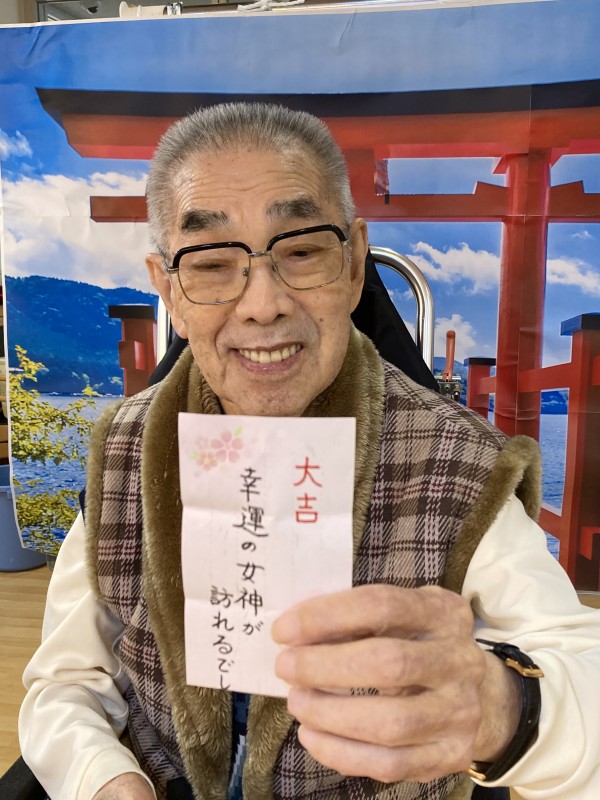 大吉
幸運の女神が
訪れるでし